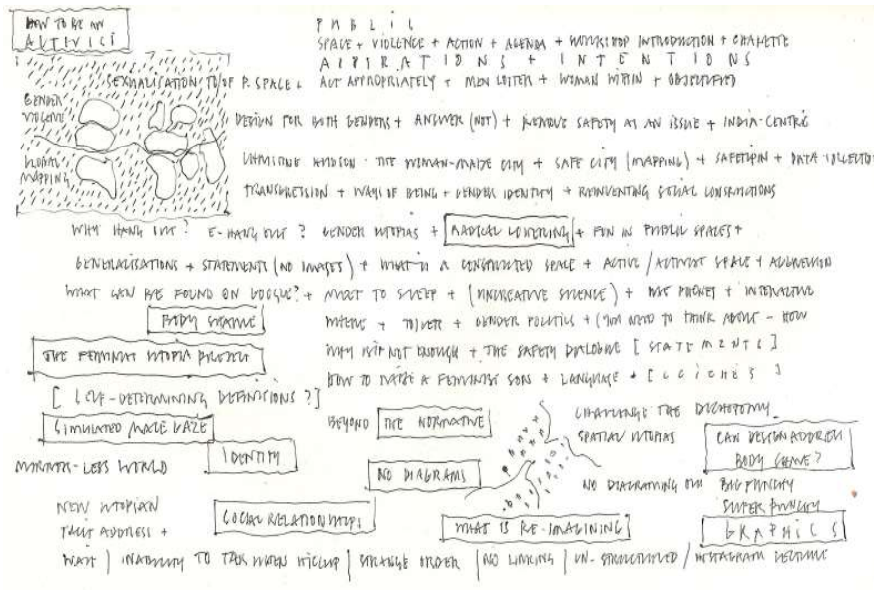 HOW TO BE AN
ACTIVIST
PUBLIC
SPACE + VIOLENCE + ACTION + AGENDA + WORKSHOP INTRODUCTION + CHARETTE
ASPIRATIONS + INTENTIONS
SEXUALISATION OF P. SPACE + ACT APPROPRIATELY + MEN LOITER + WOMAN WITHIN + OBJECTIFIED
GENDER
VIOLENCE
DESIGN FOR BOTH GENDERS + ANSWER (NOT) + REMOVE SAFETY AS AN ISSUE + INDIA-CENTRIC
GLOBAL
MAPPING
CHRISTINE HUDSON - THE WOMAN-MADE CITY + SAFE CITY (MAPPING) + SAFETIPIN + DATA COLLECTOR
TRANSGRESSION + WAYS OF BEING + GENDER IDENTITY + REINVENTING SOCIAL CONSTRUCTIONS
WHY HANG OUT? E-HANG OUT? GENDER UTOPIAS + RADICAL LOITERING + FUN IN PUBLIC SPACES +
GENERALISATIONS + STATEMENTS (NO IMAGES) + WHAT IS A CONSTRUCTED SPACE + ACTIVE / ACTIVIST SPACE + AGGRESSION
WHAT CAN BE FOUND ON GOOGLE? + MEET TO SLEEP + (UNCREATIVE SILENCE) + BIG PHONES + INTERACTIVE
BODY SHAME
WHERE + TOILET + GENDER POLITICS + (YOU NEED TO THINK ABOUT - HOW
THE FEMINIST UTOPIA PROJECT
WHY IS IT NOT ENOUGH + THE SAFETY DIALOGUE [STATEMENTS]
HOW TO RAISE A FEMINIST SON + LANGUAGE + [CLICHES]
[SELF-DETERMINING DEFINITIONS?]
SIMULATED MALE GAZE
BEYOND THE NORMATIVE
CHALLENGE THE DICHOTOMY
SPATIAL UTOPIAS
CAN DESIGN ADDRESS
BODY SHAME?
MIRROR-LESS WORLD
IDENTITY
NO DIAGRAMS
NO DIAGRAMING OUT
BIG PUNCHY
SUPER PUNCHY
GRAPHICS
NEW UTOPIAN
TALK ADDRESS +
SOCIAL RELATIONSHIPS
WHAT IS RE-IMAGINING
WAIT | INABILITY TO TALK WHEN HICCUP | STRANGE ORDER | NO LINKING | UN-STRUCTURED / INSTAGRAM LECTURE